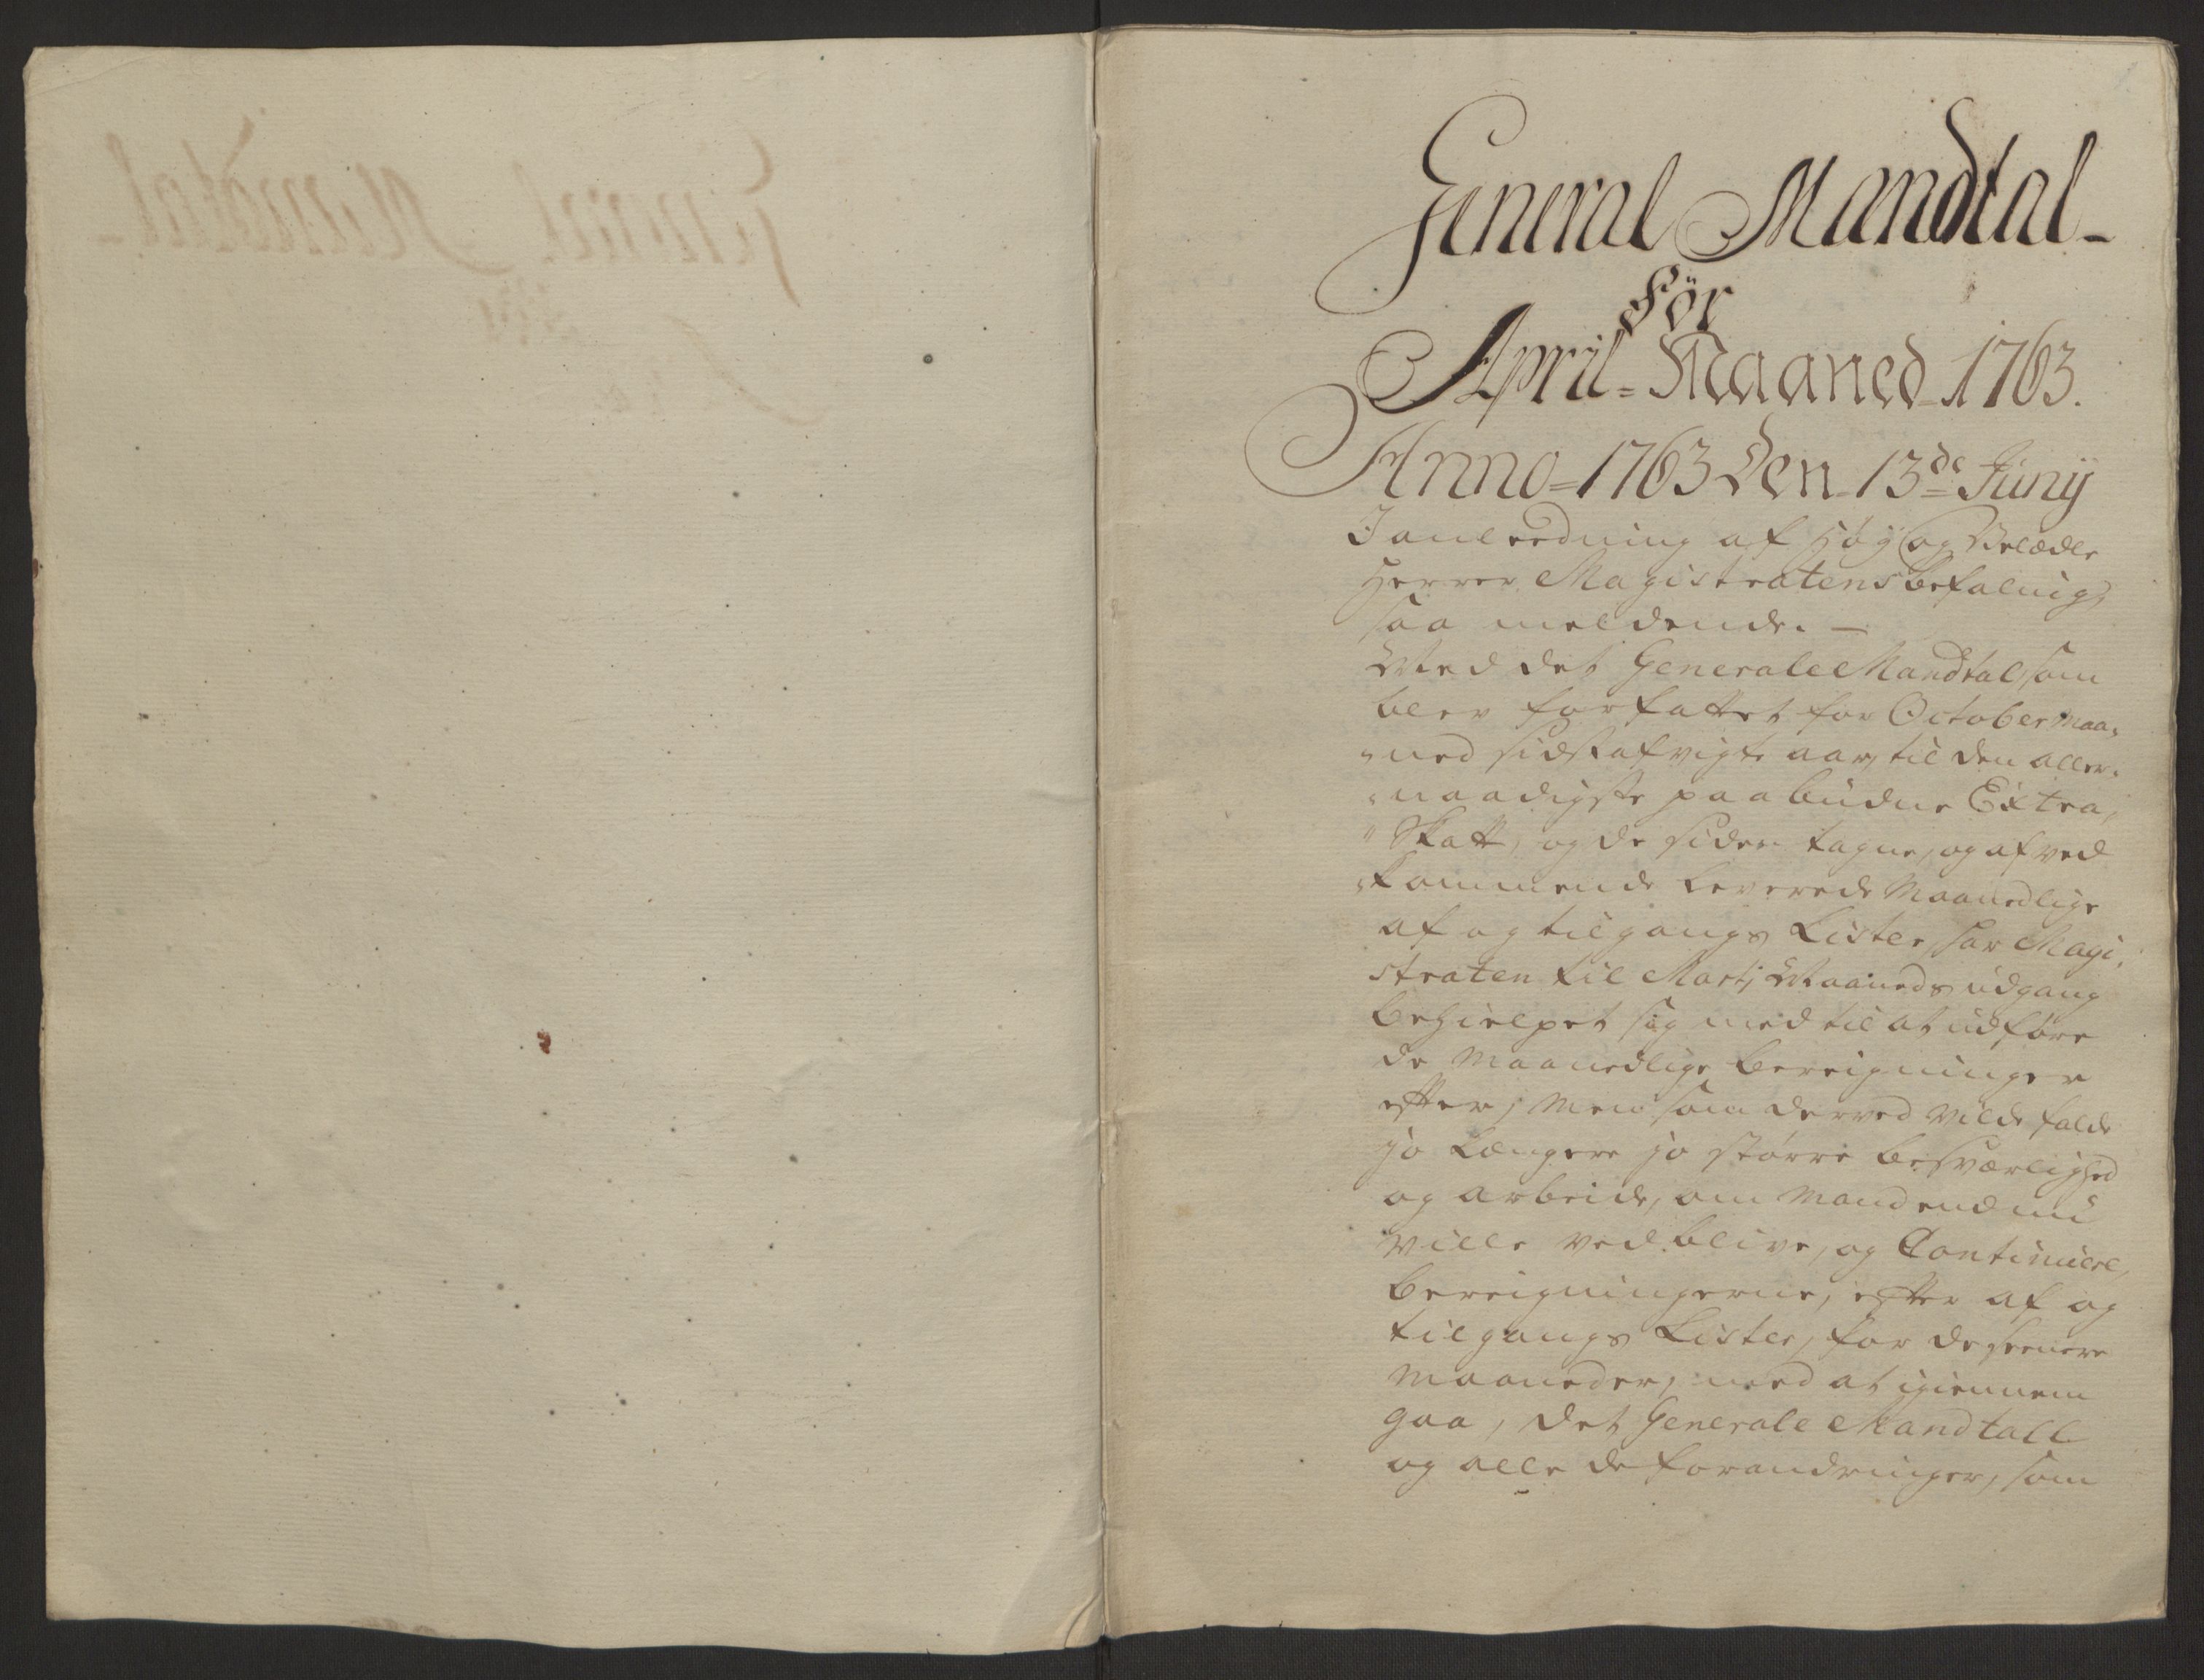 General Mandtal-
För
April= Maaned 1763.
Anno=1763 Den 13de Junij
I anleedning af Høy og Velædle
Herrer Magistratens befalning,
saa meldende. —
Med det Generale Mandtal, som
blev forfattet for October Maa„
„ned sidst afvigte aar, til den aller„
„naadigste paabudne Extra,
„Skatt, og de siden tagne, og af ved
„kommende leverede Maanedlige
af og tilgangs Lister, har Magi„
straten til Martj Maaneds udgang
behielpet sig med til at udføre
de Maanedlige bereigninger
effter; Men som derved vilde falde
jo længere jo større besværlighed
og arbeide, om Mand end nu
ville vedblive, og Continuere,
bereigningerne, effter af og
tilgangs Lister, for de seenere
Maaneder, med at igiennem
gaa, det Generale Mandtall
og alle de forandringer, som